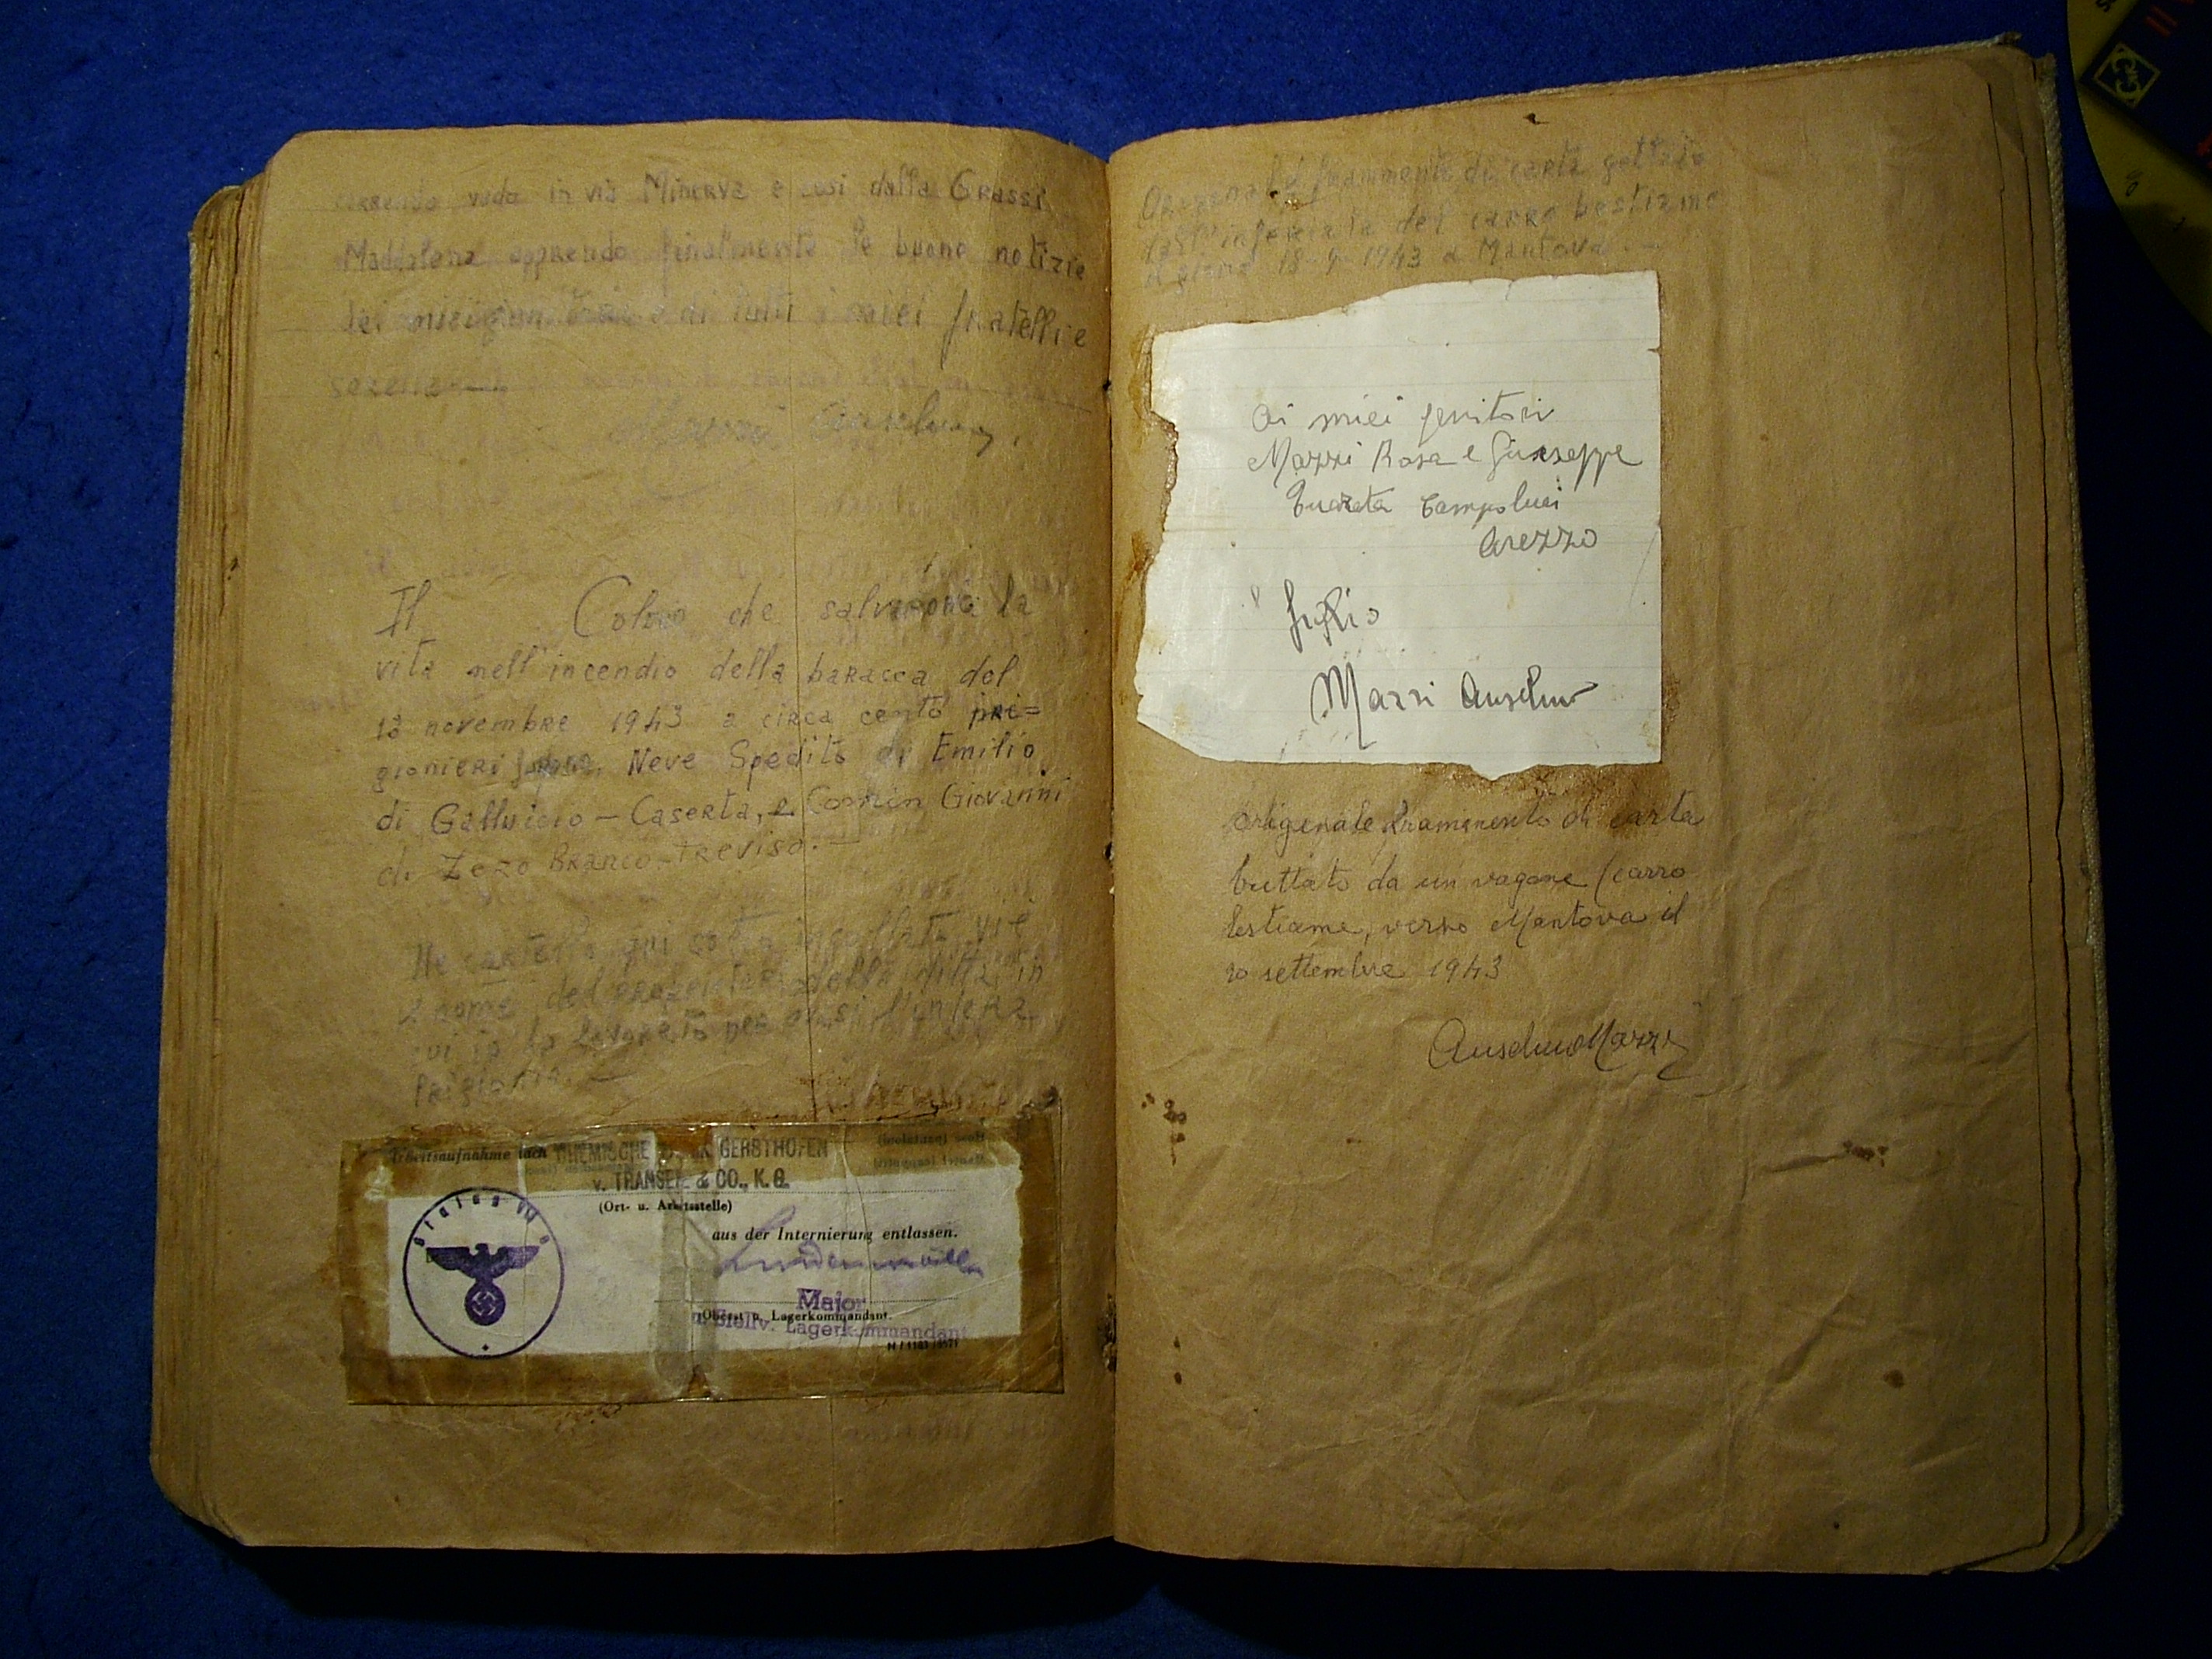 correndo vado in via Minerva e così dalla Grassi
Maddalena apprendo finalmente le buone notizie
dei miei genitori e di tutti i miei fratelli e
sorella
Mazzi Anselmo
Il Coloro che salvarono la
vita nell'incendio della baracca del
13 novembre 1943 a circa cento pri=
gionieri furono, Neve Spedito di Emilio
di Galluccio - Caserta, e Comin Giovanni
di Zero Branco - Treviso. -
Nel cartello qui sotto incollato vi è
nome del della ditta in
cui io ho lavorato per quasi l'intera
Prigionia. -
Arbeitsaufnahme nach CHEMISCHE GERSTHOFEN
v. TRANSEHE & CO., K.G.
(Ort- u. Arbeitsstelle)
aus der Internierung entlassen.
Stalag VII A
Major
Oberst u. Lagerkommandant.
u. Stellv. Lagerkommandant
Originale frammento di carta gettato
dall'inferriata del carro bestiame
il giorno 18-9-1943 a Mantova. -
Ai miei genitori
Mazzi Rosa e Giuseppe
Campoluci
Arezzo
figlio
Mazzi Anselmo
Originale frammento di carta
buttato da un vagone (carro
bestiame, verso Mantova il
settembre 1943
Anselmo Mazzi